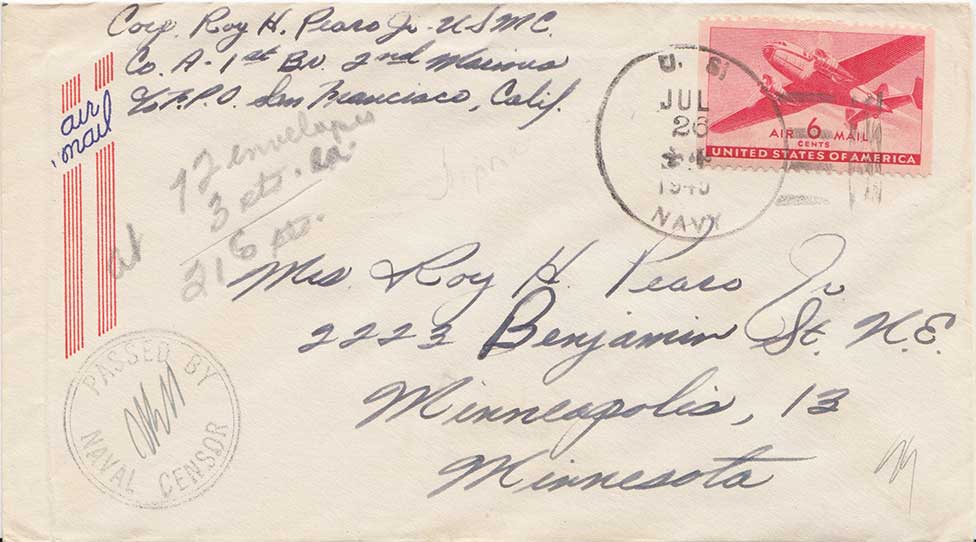 Corp. Roy H. Pearo Jr. U S M C.
Co. A - 1st Bn. 2nd Marines
% F.P.O. San Francisco, Calif.
air
mail
72 envelopes
at 3 cts. ea.
216 pts.
U. S.
JUL
26
1945
NAVY
AIR 6 MAIL
CENTS
UNITED STATES OF AMERICA
Mrs Roy H. Pearo Jr
2223 Benjamin St. N.E.
Minneapolis, 13
Minnesota
PASSED BY
NAVAL CENSOR